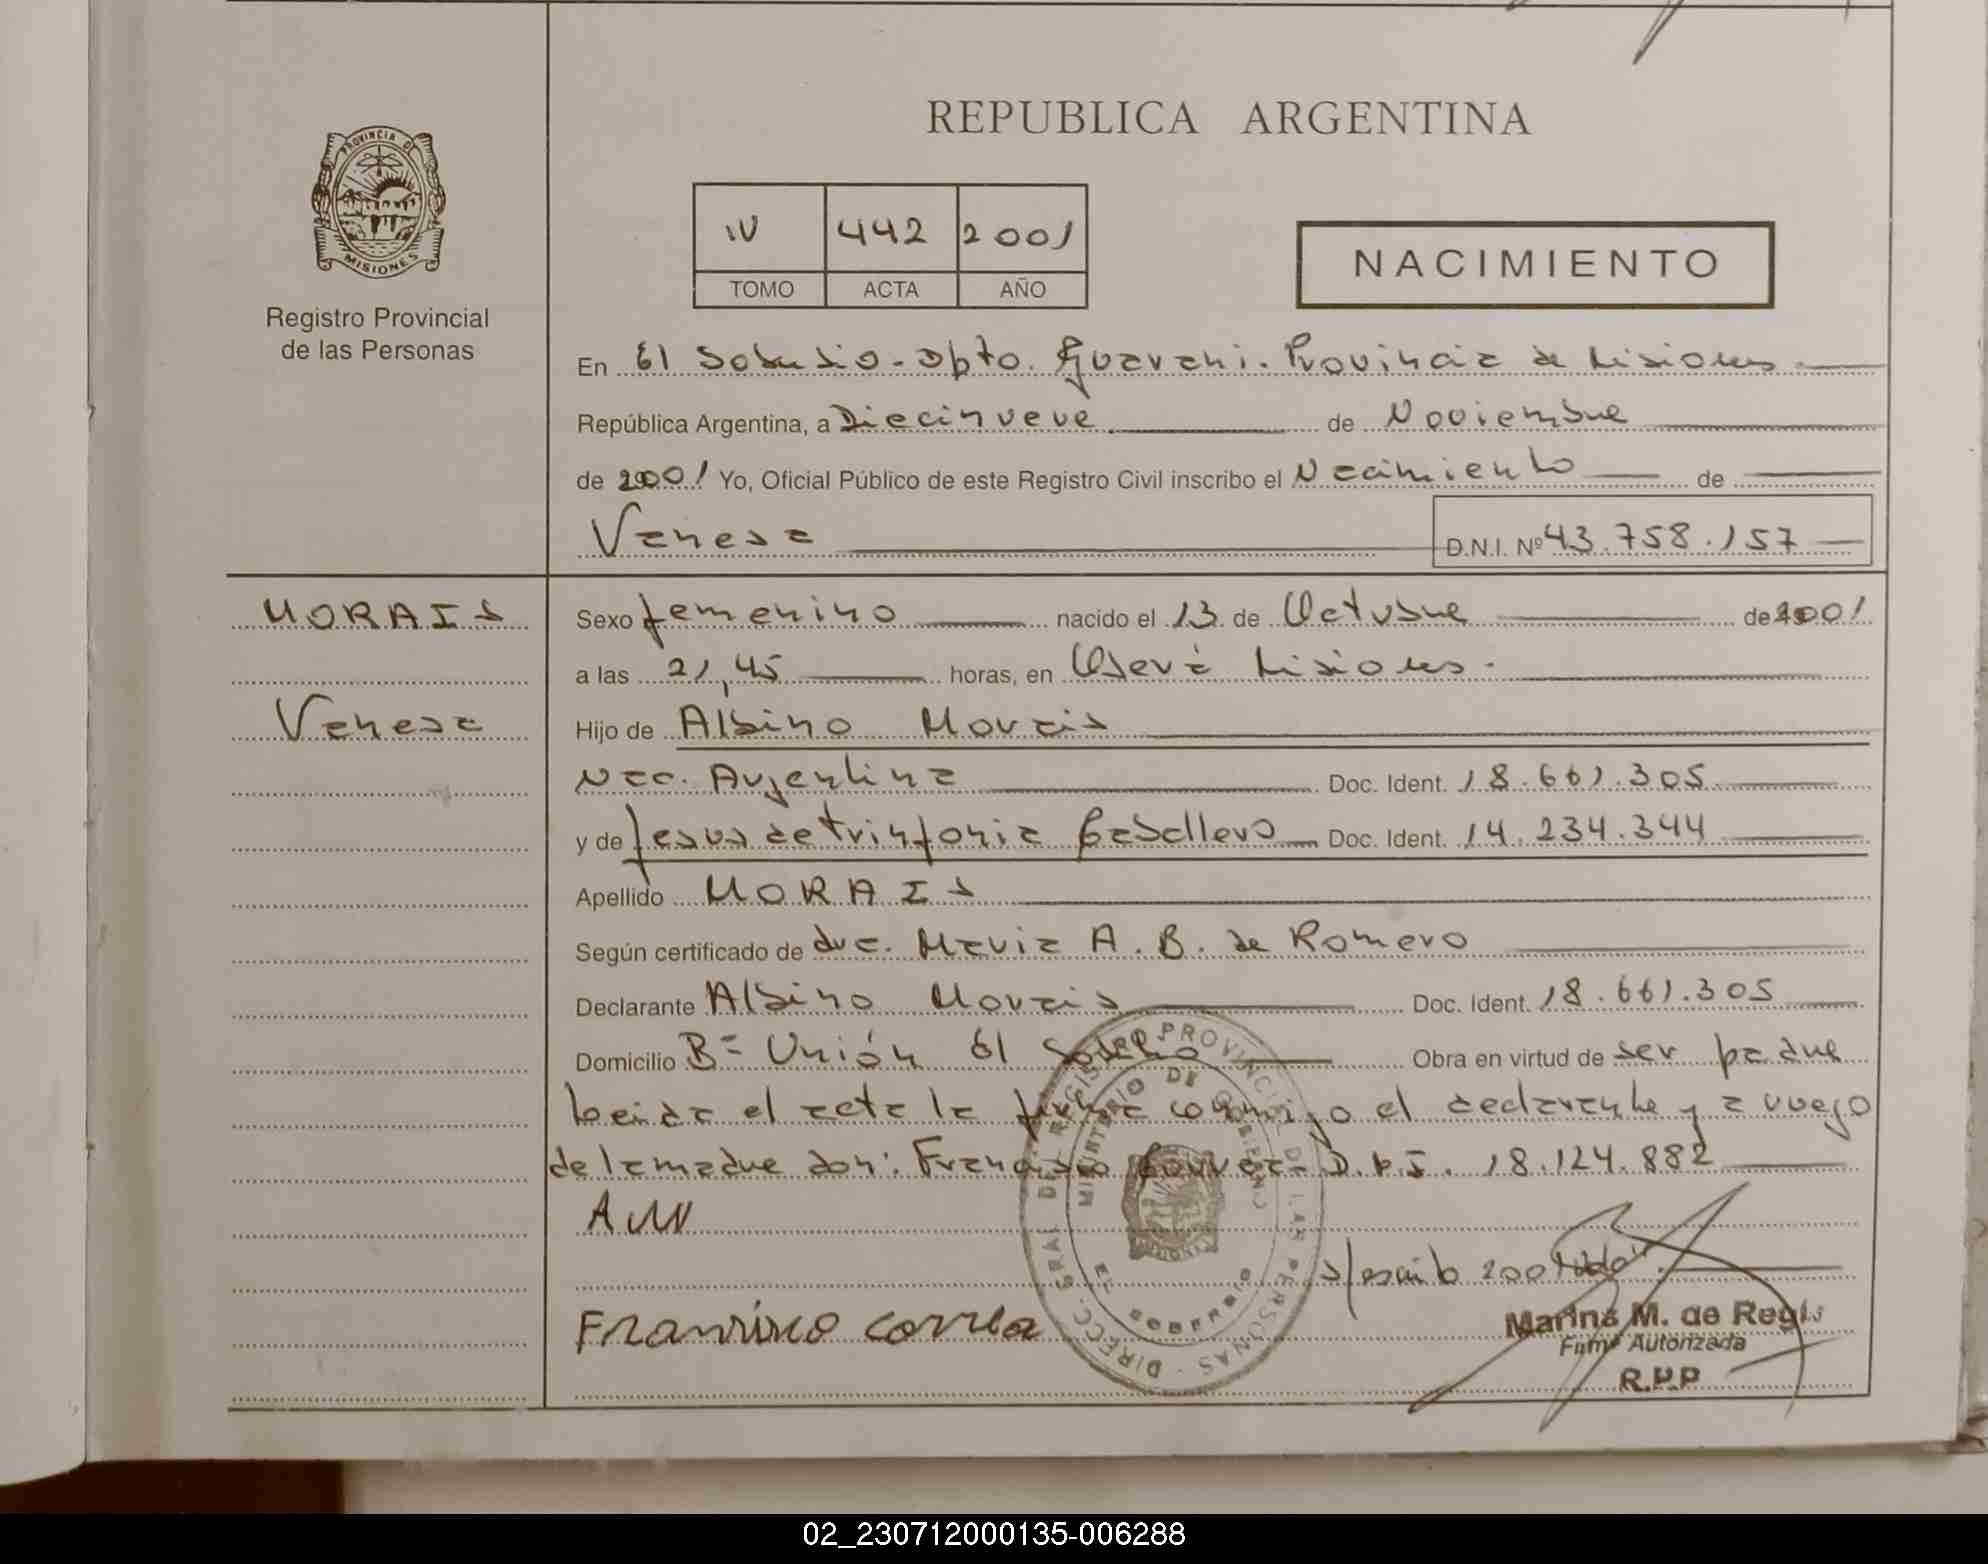 REPUBLICA ARGENTINA
PROVINCIA DE
MISIONES
Registro Provincial
de las Personas
IV 442 2001
TOMO ACTA AÑO
NACIMIENTO
En El Soberbio - Dpto. Guarani. Provincia de Misiones
República Argentina, a Diecinueve de Noviembre
de 2001 Yo, Oficial Público de este Registro Civil inscribo el Nacimiento de
Vanesa D.N.I. Nº 43.758.157
MORAIS
Vanesa
Sexo femenino nacido el 13 de Octubre de 2001
a las 21,45 horas, en Oberá Misiones.
Hijo de Albino Morais
Nac. Argentina Doc. Ident. 18.661.305
y de Jesus de trinfonia Caballero Doc. Ident. 14.234.344
Apellido MORAIS
Según certificado de dra. Maria A. B. de Romero
Declarante Albino Morais Doc. Ident. 18.661.305
Domicilio Bº Unión El Soberbio Obra en virtud de ser padre
leida el acta la firma conmigo el declarante y a ruego
de la madre don: Francisco Correa D.N.I. 18.124.882
s/escrito 2001 Vale
Francisco Correa
DIRECC. GRAL DE REGISTRO PROVINCIAL DE LAS PERSONAS
MINISTERIO DE GOBIERNO
EL SOBERBIO
Marina M. de Regis
Firma Autorizada
R.P.P
02_230712000135-006288